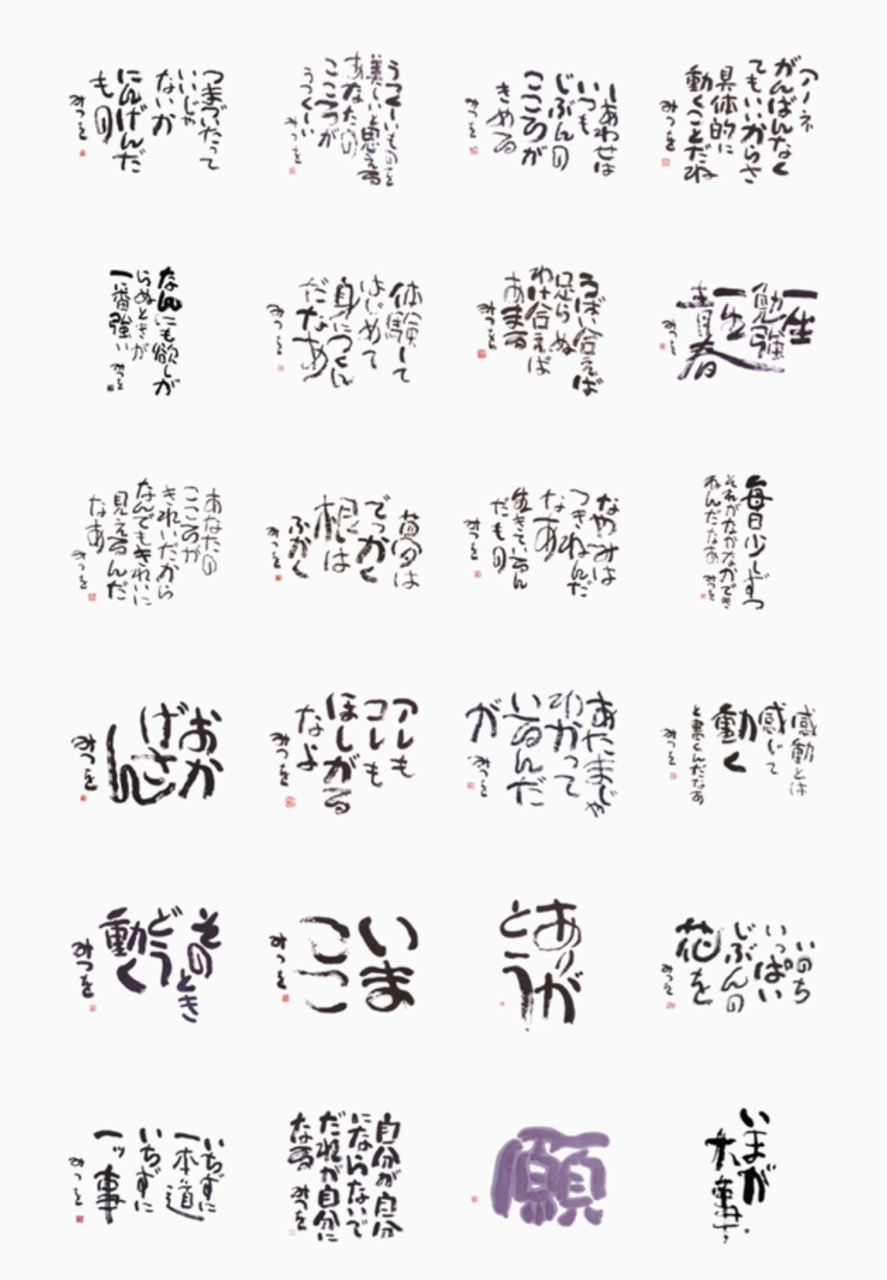 つまづいたって
いいじゃ
ないか
にんげんだ
もの
みつを
うつくしいものを
美しいと思える
あなたの
こころが
うつくしい
みつを
しあわせは
いつも
じぶんの
こころが
きめる
みつを
アノネ
がんばんなく
てもいいからさ
具体的に
動くことだね
みつを
なんにも欲しが
らぬときが
一番強い みつを
体験して
はじめて
身につくん
だなあ
みつを
うばい合えば
足らぬ
わけ合えば
あまる
みつを
一生
勉強
一生
青春
みつを
あなたの
こころが
きれいだから
なんでもきれいに
見えるんだ
なあ
みつを
夢は
でっかく
根は
ふかく
みつを
なやみは
つきねんだ
なあ
生きているん
だもの
みつを
毎日少しずつ
それがなかなかでき
ねんだなあ みつを
おか
げさ
ん
みつを
アレも
コレも
ほしがる
なよ
みつを
あたまじゃ
わかって
いるんだ
が みつを
感動とは
感じて
動く
と書くんだなあ
みつを
そのとき
どう
動く
みつを
いま
ここ
みつを
ありが
とう
いのち
いっぱい
じぶんの
花を
みつを
いちずに
一本道
いちずに
一ッ事
みつを
自分が自分
にならないで
だれが自分に
なる みつを
願
いまが
大事.